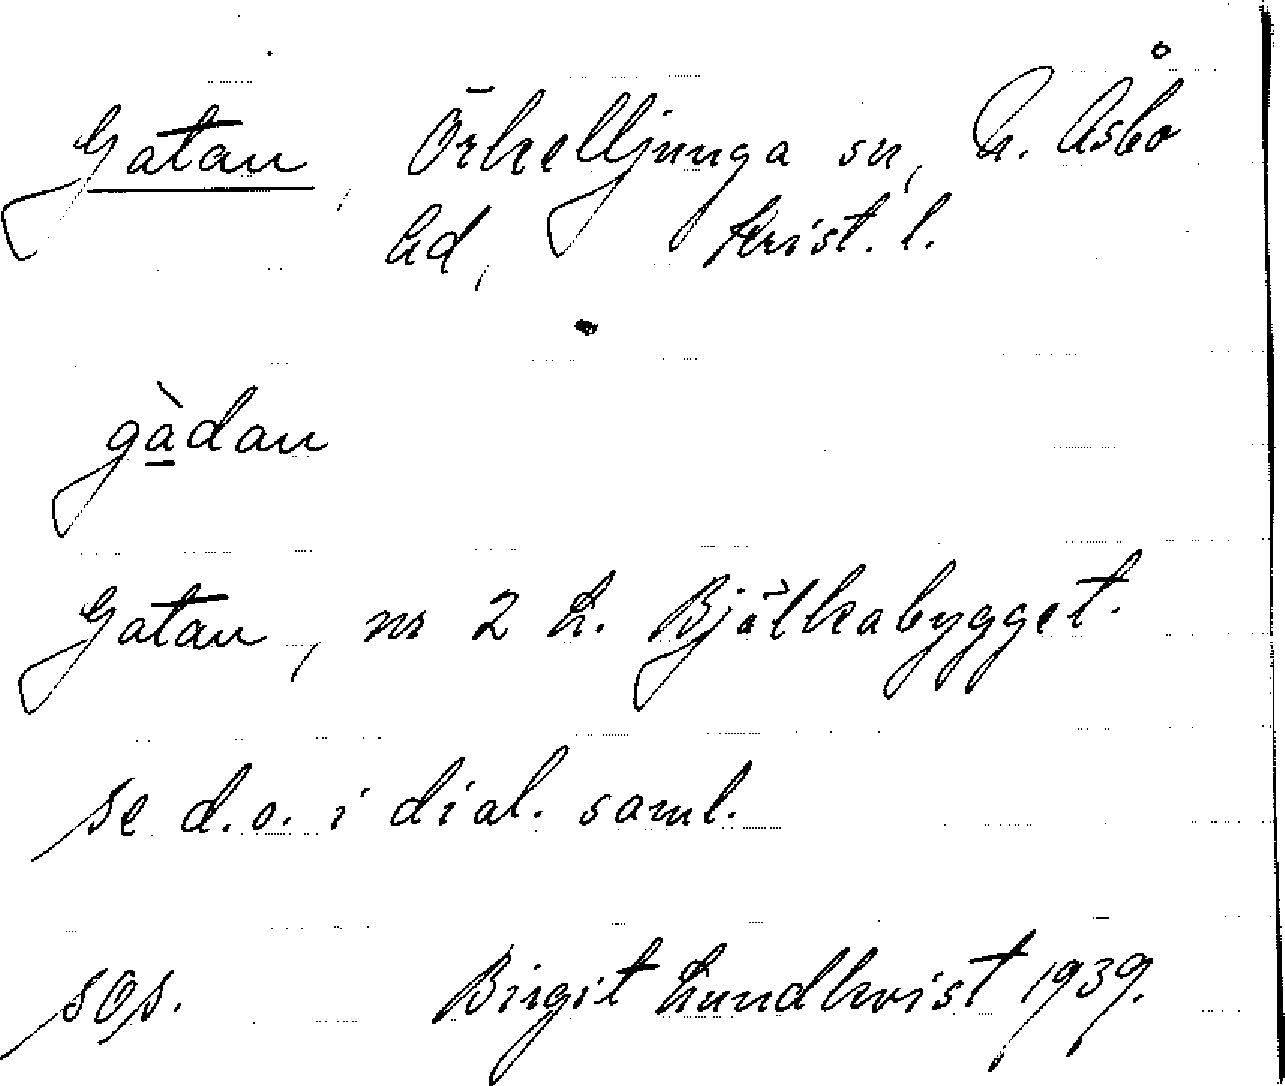 Gatan, Örkelljunga sn, N. Åsbo
hd, Krist. l.
gàdan
Gatan, nr 2 L. Bjälkabygget.
se d.o. i dial. saml.
sos. Birgit Lundkvist 1939.